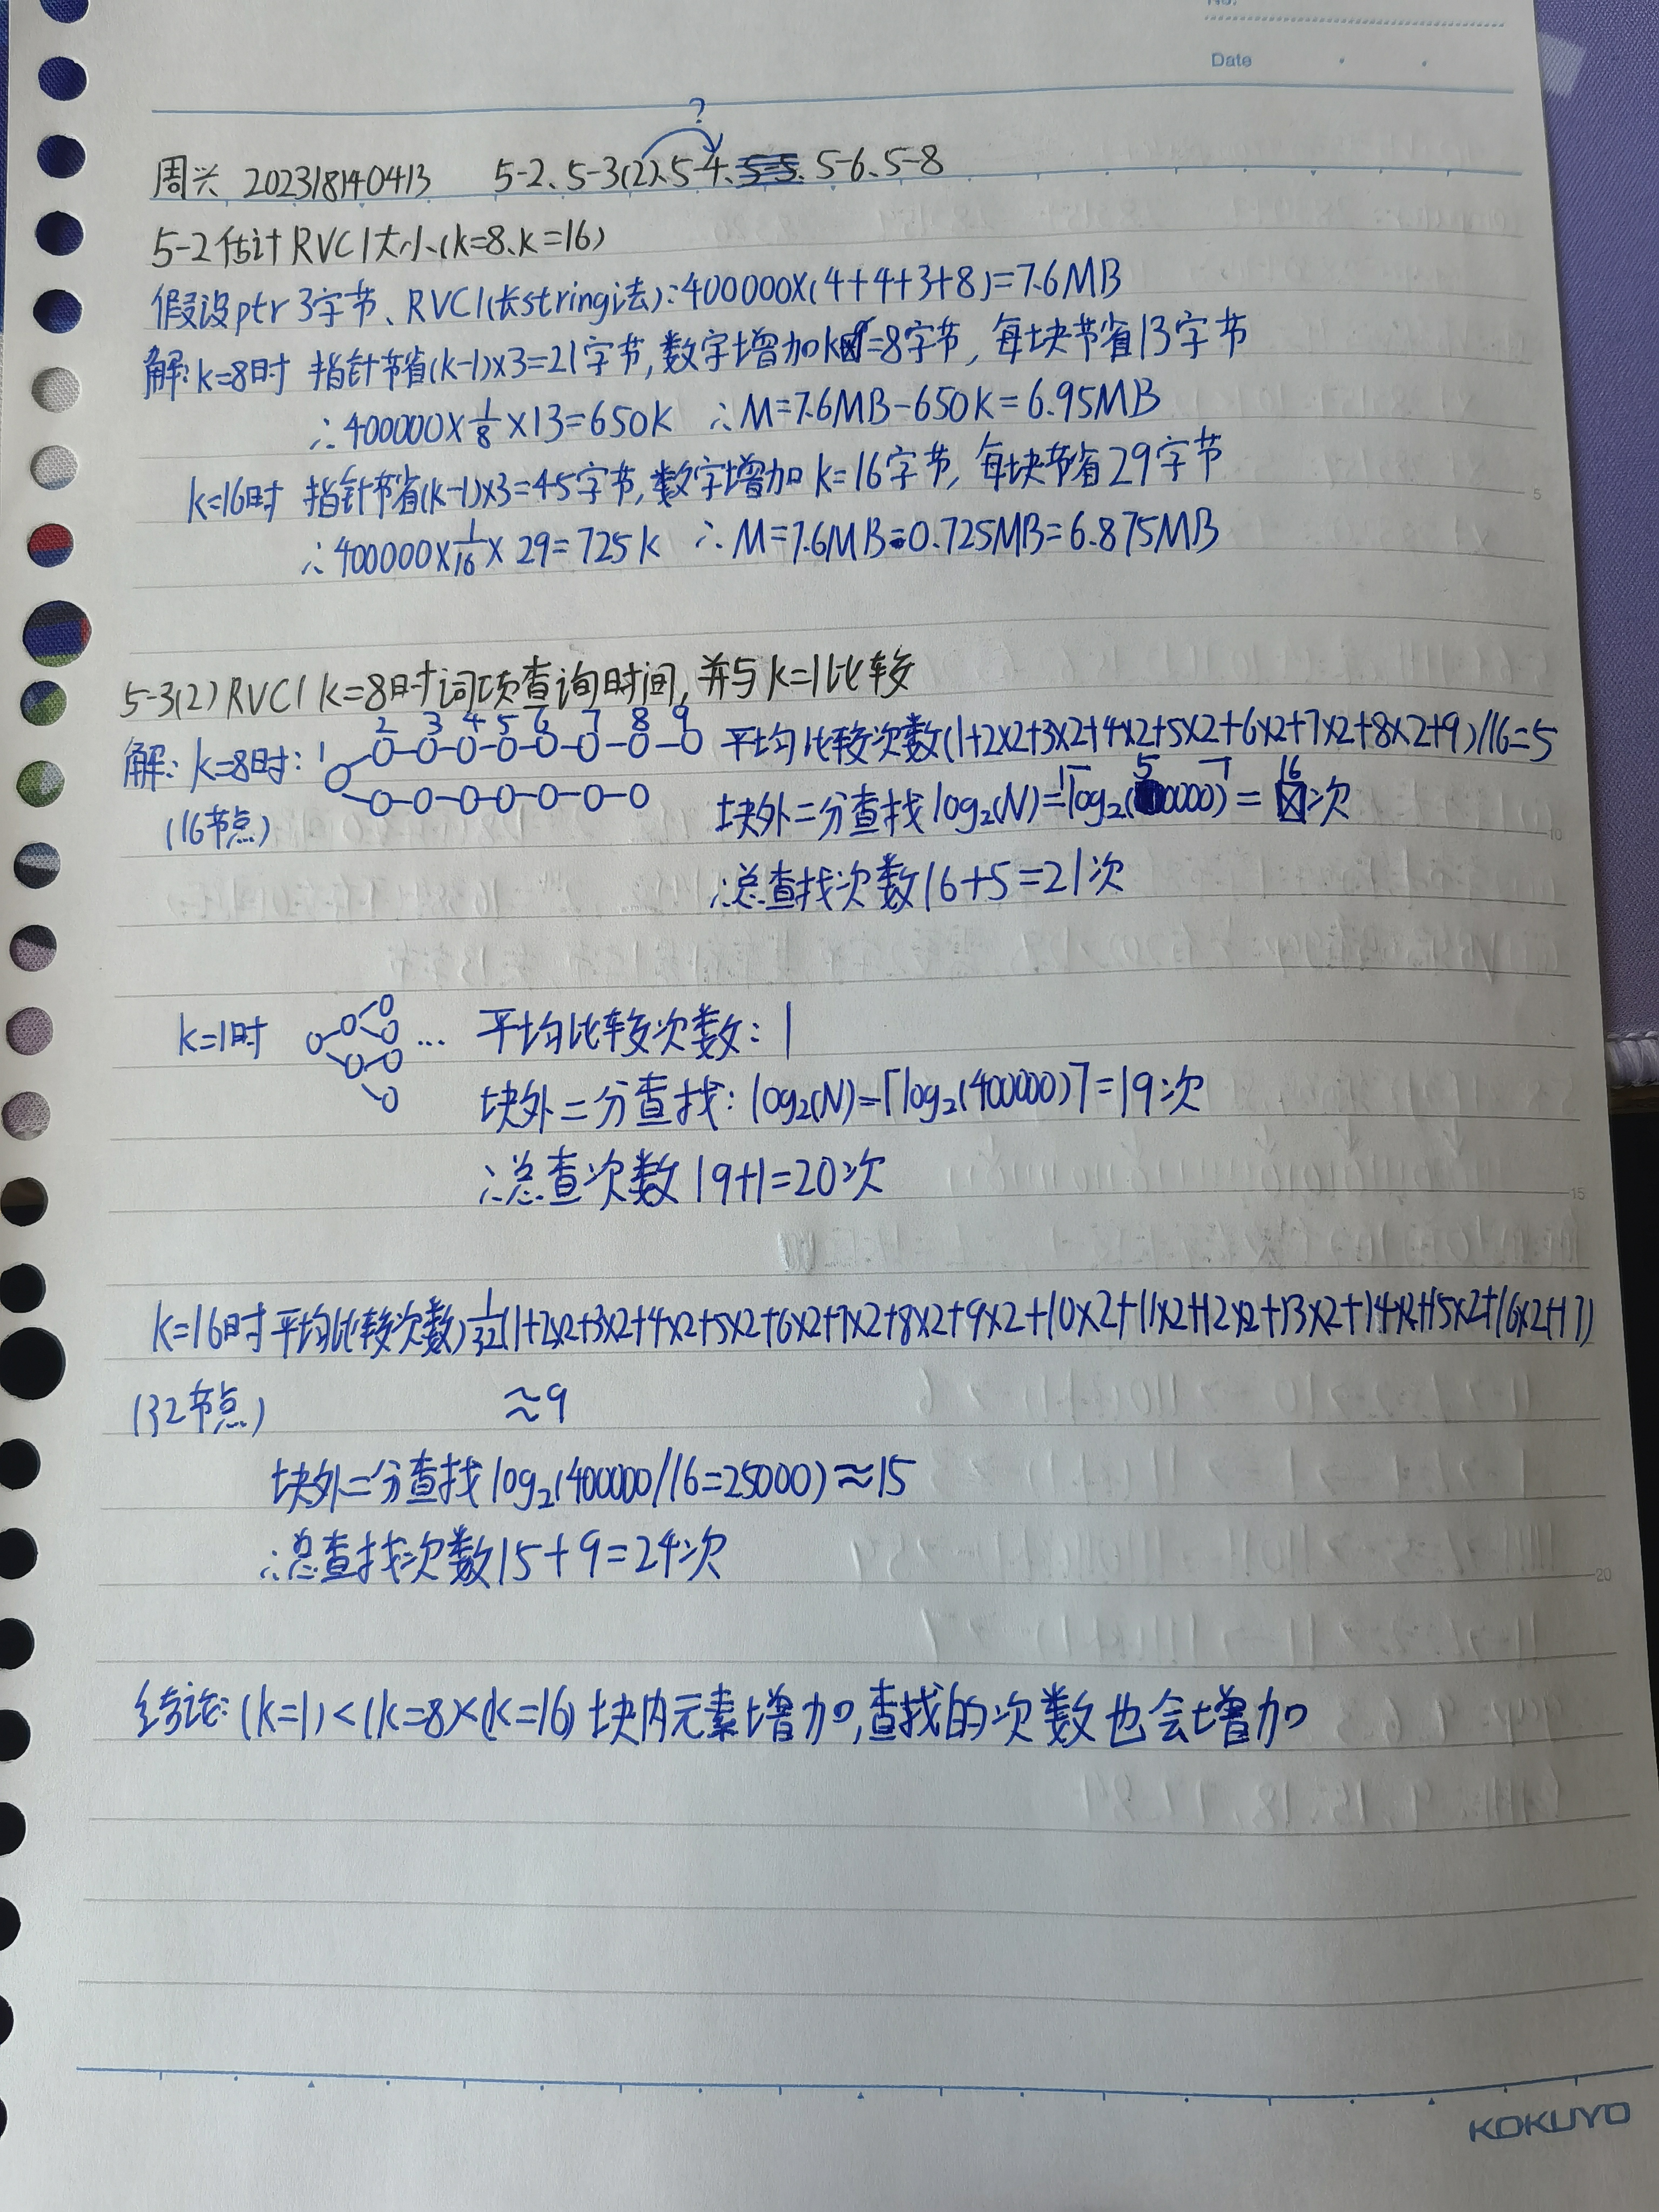 No.
Date
?
周兴 202318140413 5-2、5-3(2)、5-4、5-6、5-8
5-2 估计RVC1大小(k=8、k=16)
假设ptr 3字节、RVC1(长string法):400000×(4+4+3+8)=7.6MB
解: k=8时 指针节省(k-1)×3=21字节,数字增加k=8字节, 每块节省13字节
∴400000×1/8×13=650K ∴M=7.6MB-650K=6.95MB
k=16时 指针节省(k-1)×3=45字节,数字增加 k=16字节, 每块节省29字节
∴400000×1/16×29=725K ∴M=7.6MB-0.725MB=6.875MB
5
5-3(2) RVC1 k=8时词项查询时间,并与k=1比较
1 2 3 4 5 6 7 8 9
解: k=8时: 平均比较次数(1+2×2+3×2+4×2+5×2+6×2+7×2+8×2+9)/16=5
(16节点) 块外二分查找 log₂(N)=⌈log₂(50000)⌉=16次
10
∴总查找次数16+5=21次
k=1时 ... 平均比较次数: 1
块外二分查找: log₂(N)=⌈log₂(400000)⌉=19次
∴总查次数 19+1=20次
15
k=16时 平均比较次数)1/32(1+2×2+3×2+4×2+5×2+6×2+7×2+8×2+9×2+10×2+11×2+12×2+13×2+14×2+15×2+16×2+17)
(32节点) ≈9
块外二分查找 log₂(400000/16=25000)≈15
∴总查找次数15+9=24次
20
结论: (k=1)<(k=8)<(k=16) 块内元素增加,查找的次数也会增加
KOKUYO